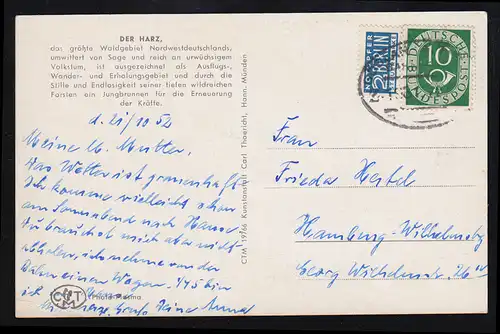 DER HARZ,
das größte Waldgebiet Nordwestdeutschlands,
umwittert von Sage und reich an urwüchsigem
Volkstum, ist ausgezeichnet als Ausflugs-,
Wander- und Erholungsgebiet und durch die
Stille und Endlosigkeit seiner tiefen wildreichen
Forsten ein Jungbrunnen für die Erneuerung
der Kräfte.
d. 21/10 52
Meine lb. Mutter.
Das Wetter ist grauenhaft
Ich komme vielleicht schon
am Sonnabend nach Hause
Du brauchst mich aber nicht
abholen, ich nehme von der
Bahn einen Wagen. 445 bin
ich Gruß Deine
CTM
Photo
CTM 19/66 Kunstanstalt Carl Thoericht, Hann. Münden
NOTOPFER
2 BERLIN
STEUERMARKE
DEUTSCHE
10
BUNDESPOST
Frau
Frieda Hertel
Hamburg-Wilhelmsburg
Georg Wilhelmstr.